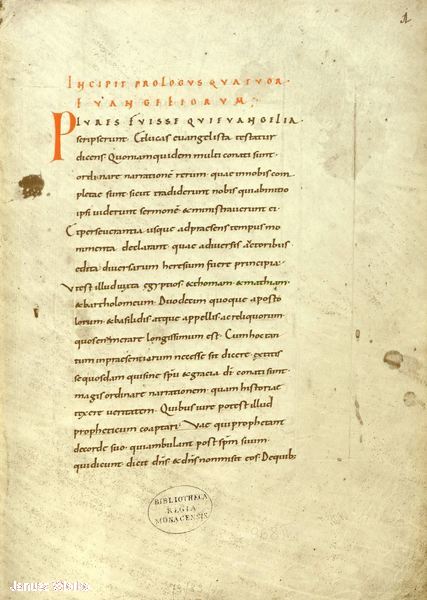 1
INCIPIT PROLOGUS QUATUOR
EUANGELIORUM;
PLURES FUISSE QUI EUANGELIA
scripserunt. & lucas euangelista testatur
dicens. Quoniam quidem multi conati sunt
ordinare narrationē rerum. quae in nobis com
pletae sunt sicut tradiderunt nobis qui ab initio
ipsi uiderunt sermonē & ministrauerunt ei
& perseuerantia usque ad praesens tempus mo
nimenta declarant quae a diuersis auctoribus
edita. diuersarum heresium fuere principia.
Ut est illud iuxta egyptios & thomam & mathiam
& bartholomeum. Duodecim quoque aposto
lorum. & basilidis atque appellis. ac reliquorum
quos enumerare longissimum est. Cum hoc tan
tum in praesentiarum necesse sit dicere. extitis
se quosdam qui sine spu & gracia dī conati sunt
magis ordinare narrationem. quam historiae
texere ueritatem. Quibus iure potest illud
propheticum coaptari. Uae qui prophetant
de corde suo. qui ambulant post spm suum.
qui dicunt. dicit dns & dns non misit eos. De quib;
BIBLIOTHECA
REGIA
MONACENSIS.